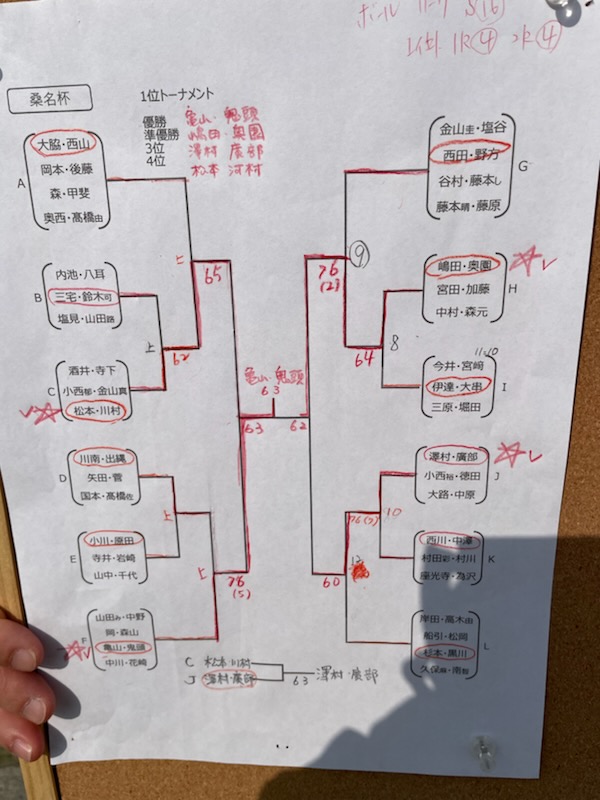 ボール
桑名杯
1位トーナメント
優勝 亀山・鬼頭
準優勝 嶋田・奥園
3位 澤村 廣部
4位 松本 河村
A
大脇・西山
岡本・後藤
森・甲斐
奥西・髙橋由
B
内池・八耳
三宅・鈴木司
塩見・山田路
C
酒井・寺下
小西郁・金山真
松本・川村
D
川南・出縄
矢田・菅
国本・髙橋佐
E
小川・原田
寺井・岩崎
山中・千代
F
山田み・中野
岡・森山
亀山・鬼頭
中川・花崎
G
金山圭・塩谷
西田・野方
谷村・藤本し
藤本晴・藤原
H
嶋田・奥園
宮田・加藤
中村・森元
I
11.10
今井・宮﨑
伊達・大串
三原・堀田
J
澤村・廣部
小西裕・徳田
大路・中原
K
西川・中澤
村田彩・村川
座光寺・為沢
L
岸田・高木由
船引・松岡
杉本・黒川
久保麻・南智
上
65
上
62
上
上
76
(5)
63
亀山・鬼頭
63
62
76
(2)
9
64
8
76(5)
10
60
12
C 松本・川村
J 澤村・廣部
63
澤村・廣部